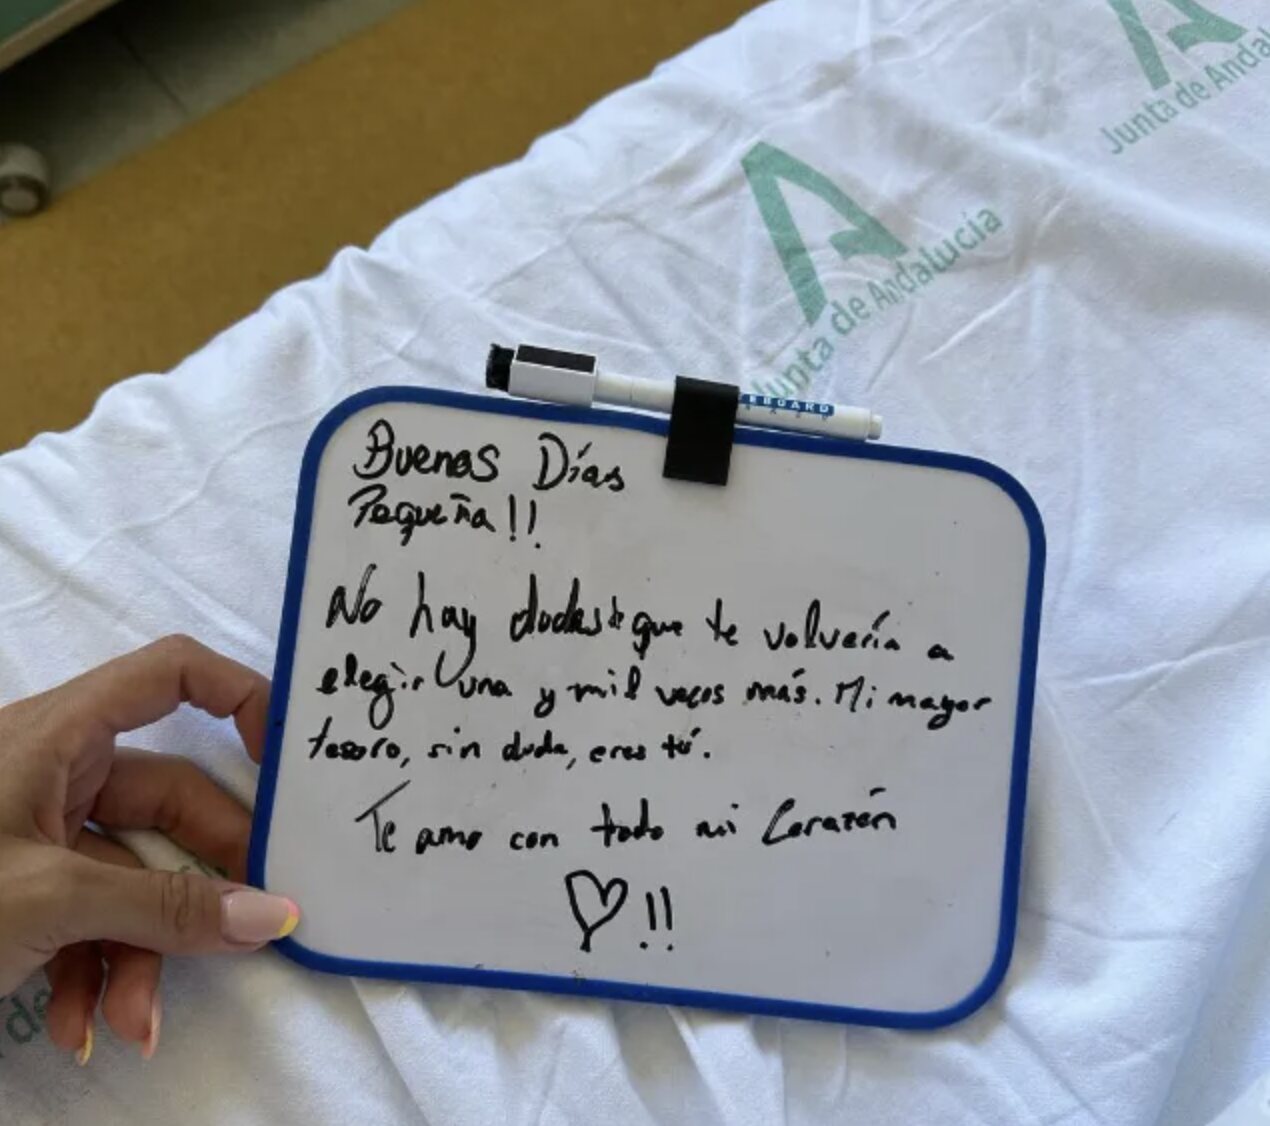 Junta de Andalucía
Junta de Andalucía
EBOARD
Buenas Días
Pequeña!!
No hay dudas de que te volvería a
elegir una y mil veces más. Mi mayor
tesoro, sin duda, eres tú.
Te amo con todo mi Corazón
♡!!
de